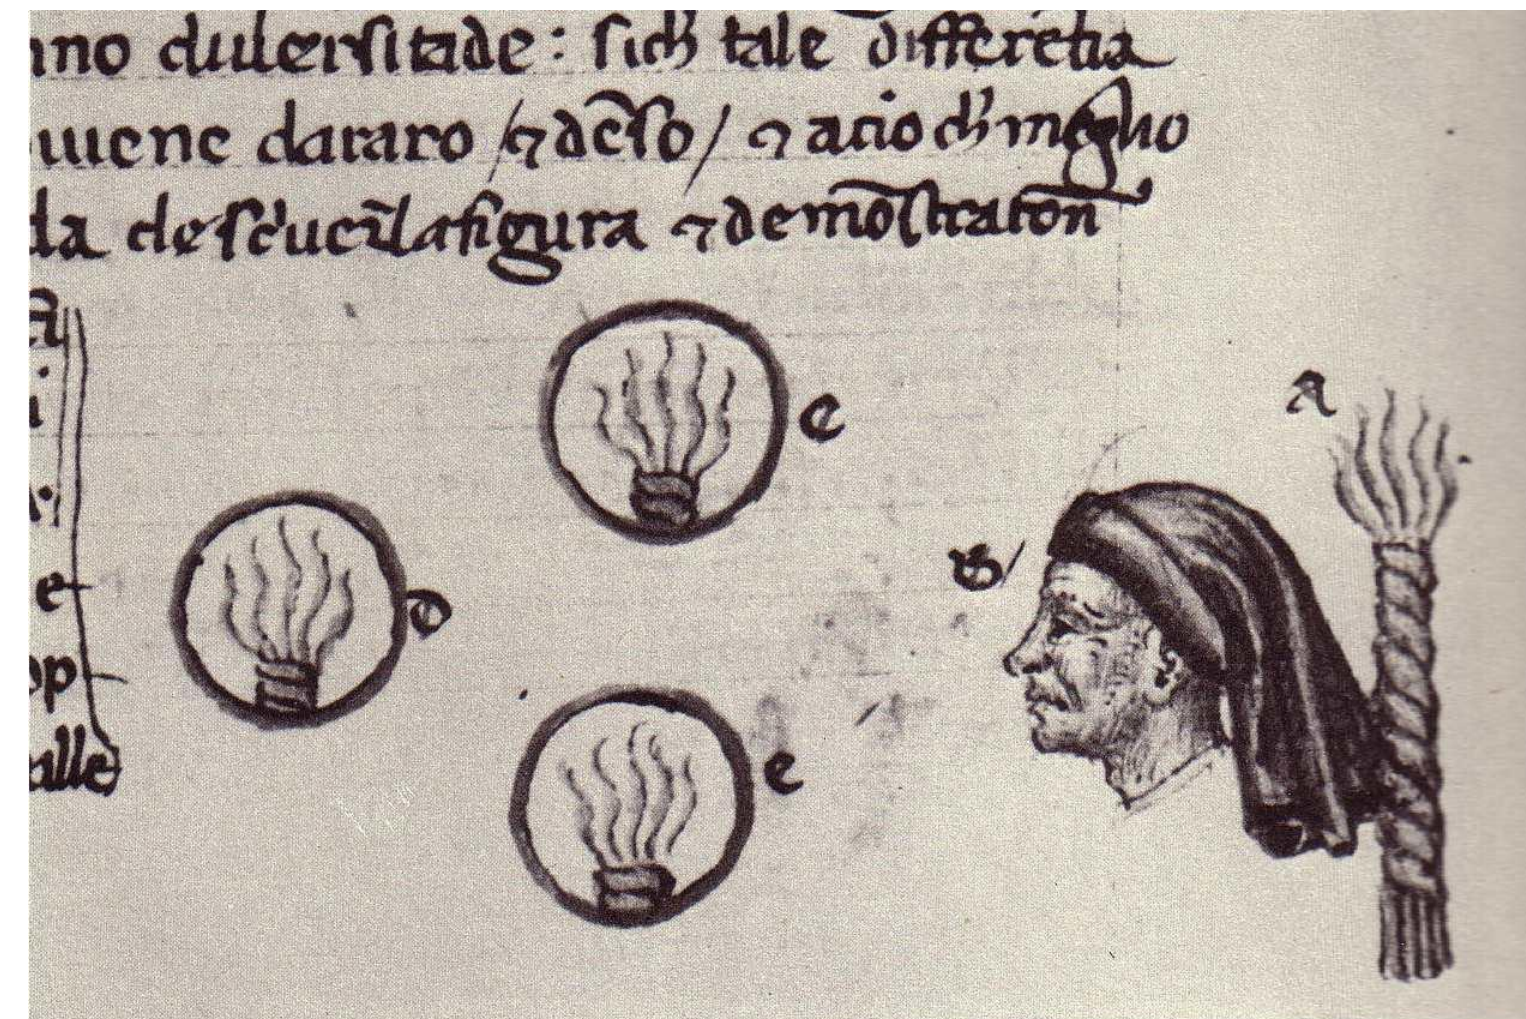 nno diuersitade: sich tale differētia
uiene dararo / ⁊ dēso / ⁊ acio ch meglio
da descriuerōla figura ⁊ demōstratōn
e
A
B
D
e
op
e
alle